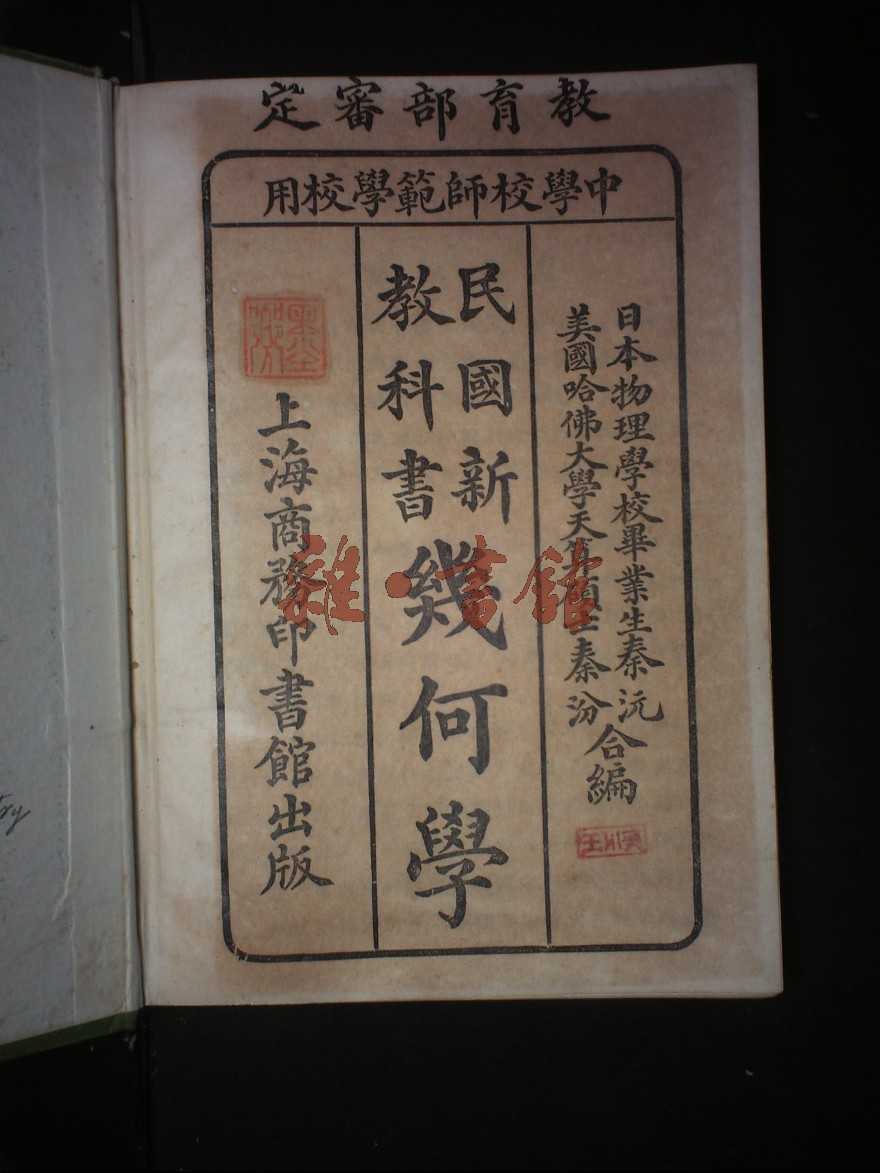 教育部審定
中學校師範學校用
日本物理學校畢業生秦沅
美國哈佛大學天算碩士秦汾
合編
民國新
教科書
幾何學
上海商務印書館出版
雜·書館